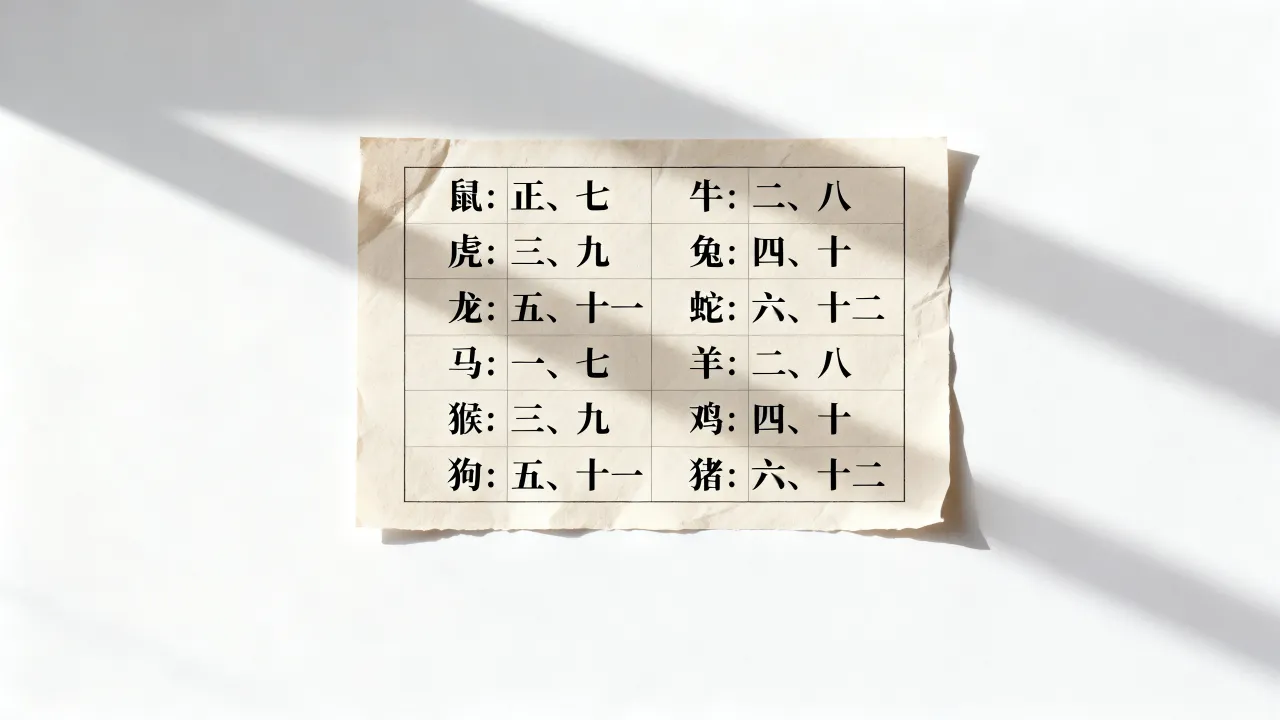 鼠：正、七 牛：二、八
虎：三、九 兔：四、十
龙：五、十一 蛇：六、十二
马：一、七 羊：二、八
猴：三、九 鸡：四、十
狗：五、十一 猪：六、十二